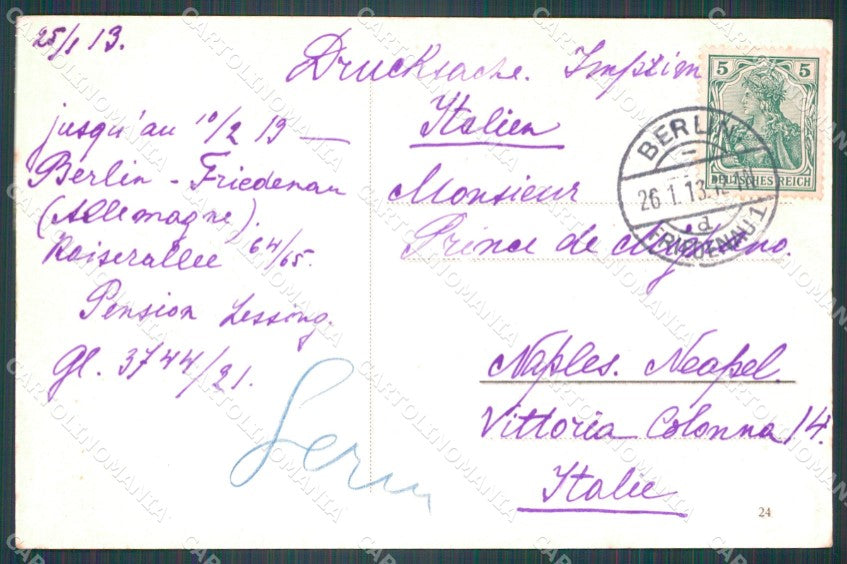 25/1 13.
jusqu'au 10/2 13 —
Berlin - Friedenau
(Allemagne).
Kaiserallee 64/65.
Pension Lessing.
Gl. 3744/21.
Drucksache. Imprim
Italien
Monsieur
Prince de
Naples. Neapel.
Vittoria Colonna 14.
Italie
5 5
DEUTSCHES REICH
BERLIN
26.1.13.
d
FRIEDENAU 1
24
CARTOLINOMANIA